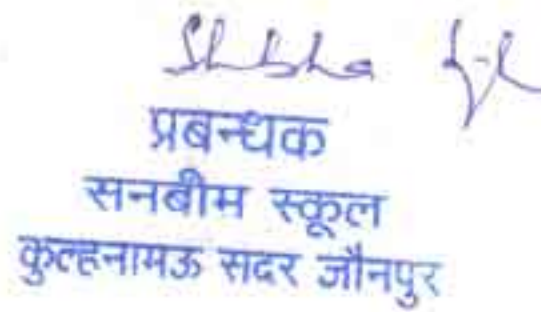 Shubha
प्रबन्धक
सनबीम स्कूल
कुल्हनामऊ सदर जौनपुर